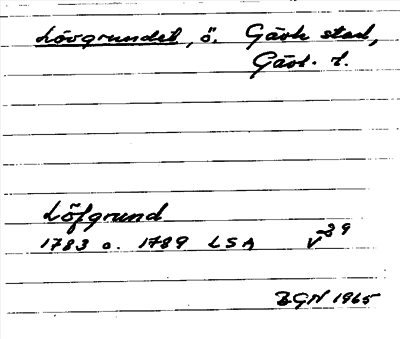 Lövgrundet, ö. Gävle stad,
Gäst. l.
Löfgrund
1783 o. 1789 LSA V 39
BGN 1965